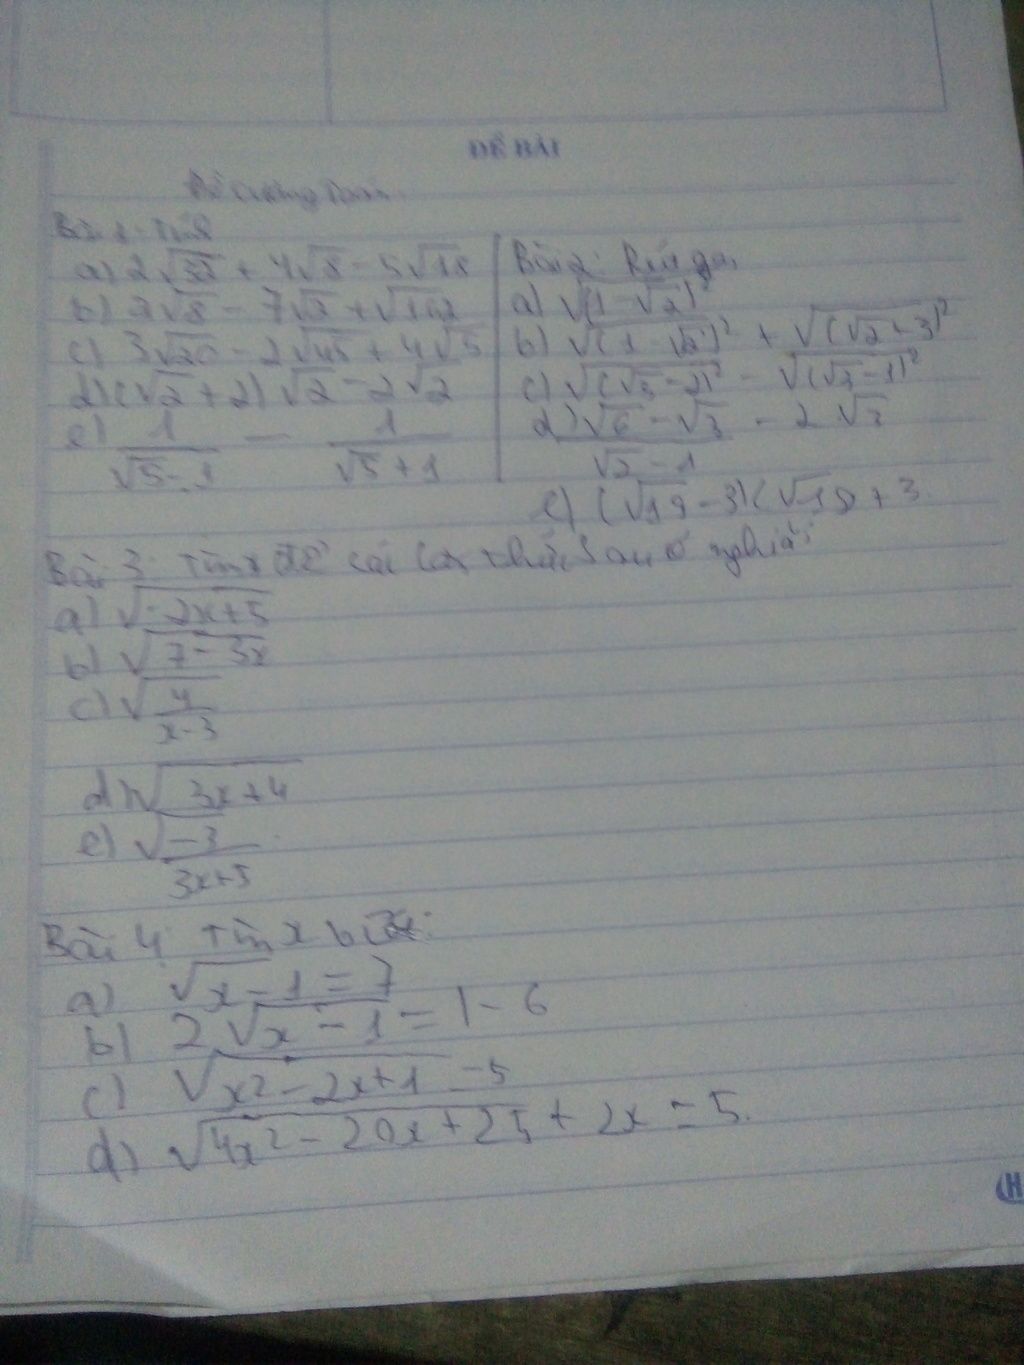 ĐỀ BÀI
Đề cương Toán
Bài 1: Tính
a) 2√32 + 4√8 - 5√18
b) 2√8 - 7√2 + √162
c) 3√20 - 2√45 + 4√5
d) (√2 + 2)√2 - 2√2
e) 1/(√5 - 1) - 1/(√5 + 1)
Bài 2: Rút gọn
a) √(1 - √2)²
b) √(1 - √2)² + √(√2 + 3)²
c) √(√3 - 2)² - √(√3 - 1)²
d) (√6 - √3)/(√2 - 1) - 2√3
e) (√19 - 3)(√19 + 3
Bài 3: Tìm x để các căn thức sau có nghĩa:
a) √(-2x+5)
b) √(7 - 3x)
c) √(4/(x-3))
d) √(3x+4)
e) √(-3/(3x+5))
Bài 4: Tìm x biết:
a) √(x-1) = 7
b) 2√(x - 1) = 1 - 6
c) √(x² - 2x+1) = 5
d) √(4x² - 20x + 25) + 2x = 5.